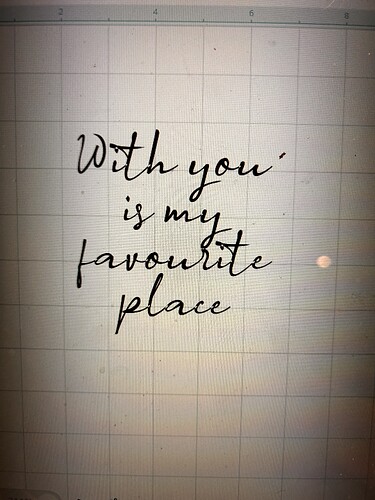 2 4 6 8
With you
is my
favourite
place